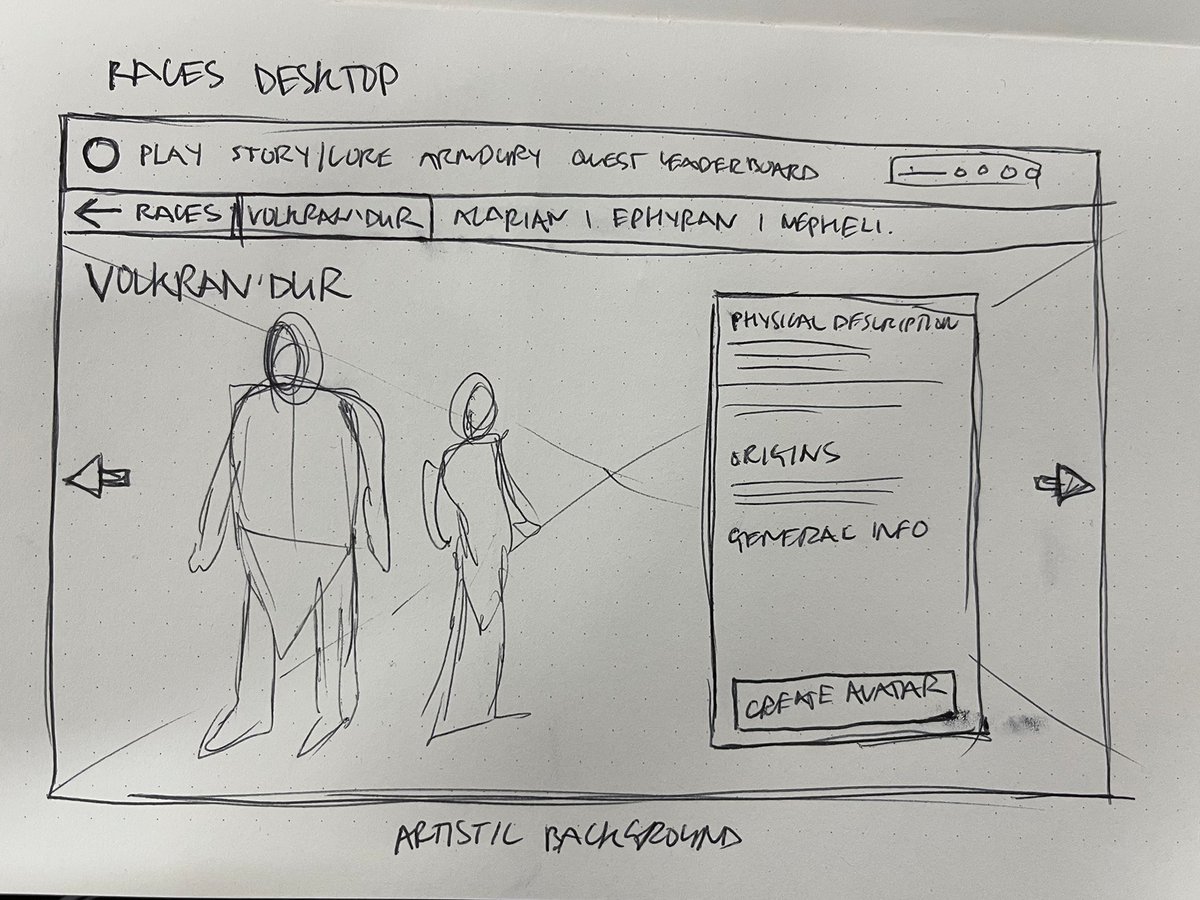 RACES DESKTOP
PLAY STORY/LORE ARMOURY QUEST LEADERBOARD
RACES | VOLKRAN'DUR ALARIAN | EPHYRAN | NEPHELI.
VOLKRAN'DUR
PHYSICAL DESCRIPTION
ORIGINS
GENERAL INFO
CREATE AVATAR
ARTISTIC BACKGROUND